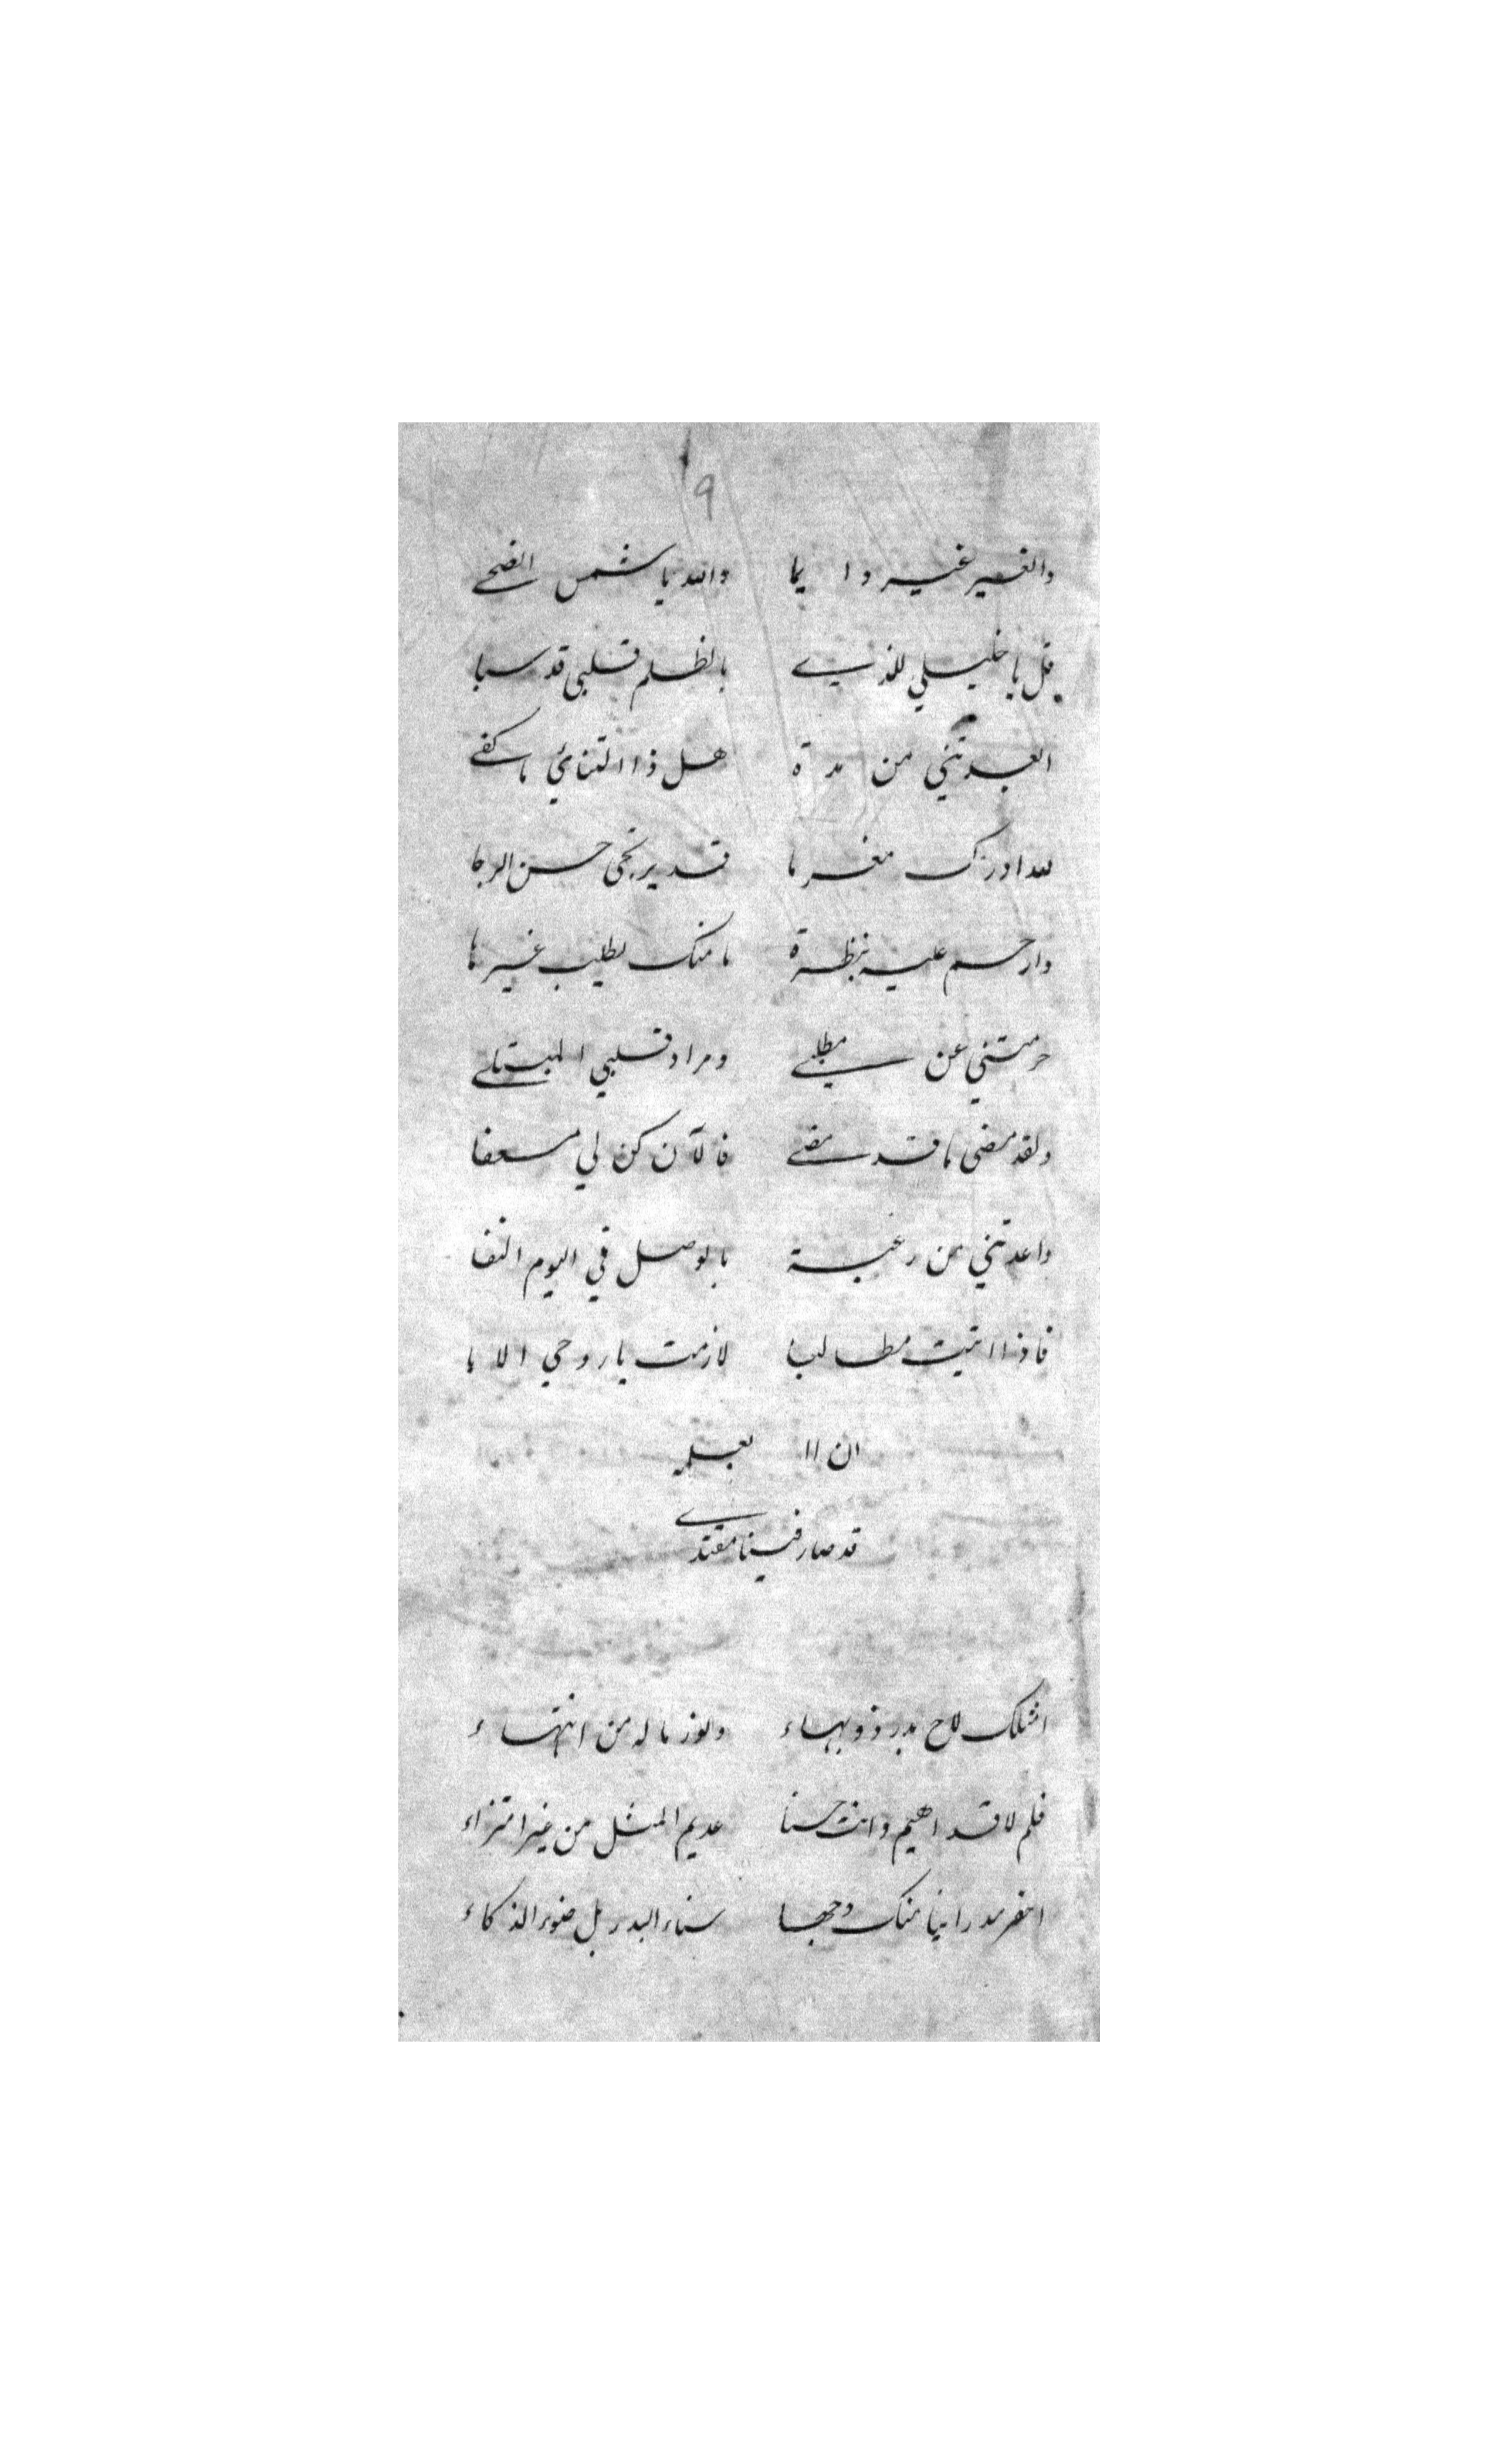 ٩
والغير غير دايما والله يا شمس الضحى
قل يا خليلي للذي بالظلم قلبي قد سبا
ابعدتني من مدة هل ذا التنائي ما كفى
لله ادرك مغرما قد يرتجى حسن الرجا
وارحم عليه بنظرة ما منك يطلب غيرها
حرمتني عن مطلبي ومراد قلبي المبتلى
ولقد مضى ما قد مضى فالآن كن لي مسعفا
واعدتني من رغبة بالوصل في اليوم
فاذا اتيت مطالبا لازمت يا روحي الابا
ان
قد صار فينا مقتدى
امثلك لاح بدر ذو بهاء ونور ماله من انتهاء
فلم لا قد اهيم وانت حسنا عديم المثل من غير امتراء
راينا منك وجها سناء البدر بل ضوء الذكاء